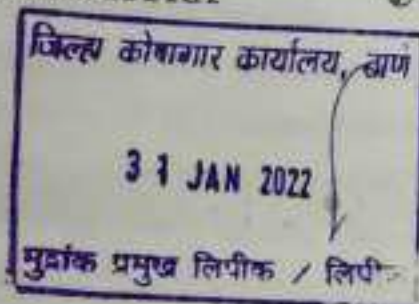 जिल्हा कोषागार कार्यालय, ठाणे
3 1 JAN 2022
मुद्रांक प्रमुख लिपीक /